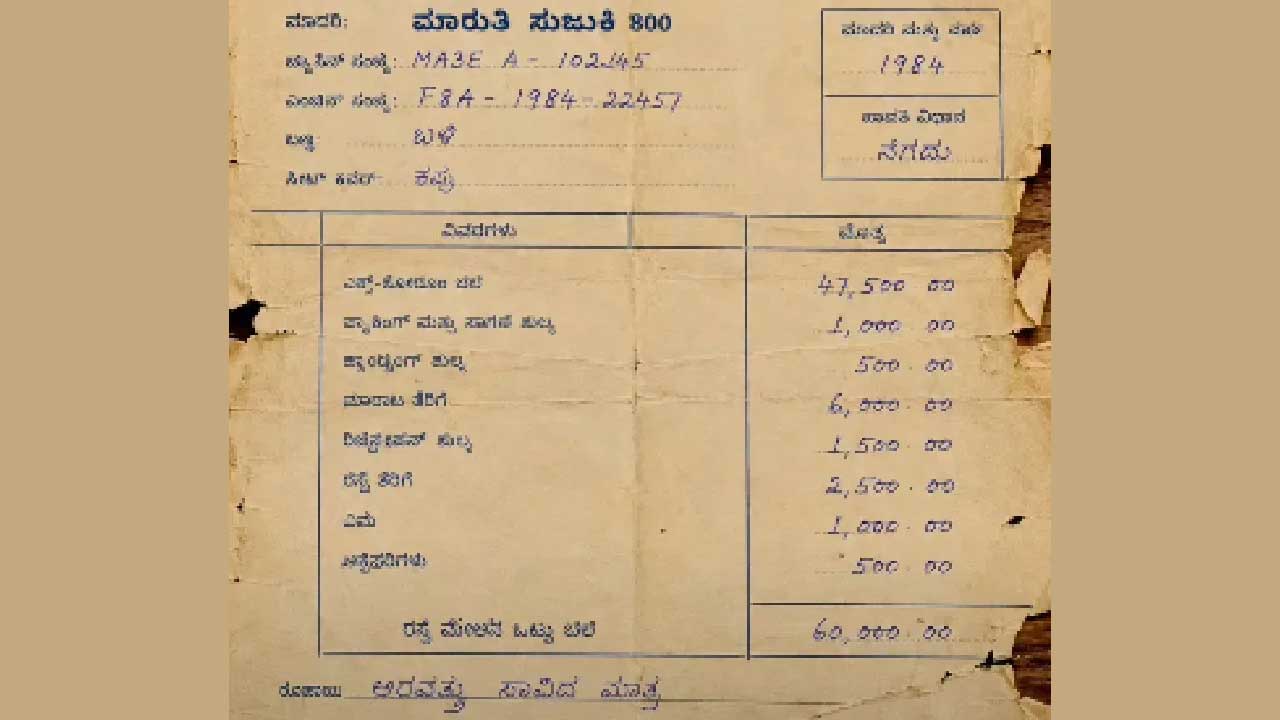 ಮಾದರಿ: ಮಾರುತಿ ಸುಜುಕಿ 800
ಮಾದರಿ ಮತ್ತು ವರ್ಷ
1984
MA3E A - 102J45
F8A - 1984 - 22457
ಬಣ್ಣ: ಬಿಳಿ
ಪಾವತಿ ವಿಧಾನ
ನಗದು
ಸೀಟ್ ಕವರ್: ಕಪ್ಪು
ವಿವರಗಳು ಮೊತ್ತ
ಎಕ್ಸ್-ಶೋರೂಂ ಬೆಲೆ 47,500.00
ಪ್ಯಾಕಿಂಗ್ ಮತ್ತು ಸಾಗಣೆ ಶುಲ್ಕ 1,000.00
ಹ್ಯಾಂಡ್ಲಿಂಗ್ ಶುಲ್ಕ 500.00
ಮಾರಾಟ ತೆರಿಗೆ 6,000.00
ರಿಜಿಸ್ಟ್ರೇಷನ್ ಶುಲ್ಕ 1,500.00
ರಸ್ತೆ ತೆರಿಗೆ 2,500.00
ವಿಮೆ 1,000.00
500.00
ರಸ್ತೆ ಮೇಲಿನ ಒಟ್ಟು ಬೆಲೆ 60,000.00
ರೂಪಾಯಿ ಅರವತ್ತು ಸಾವಿರ ಮಾತ್ರ